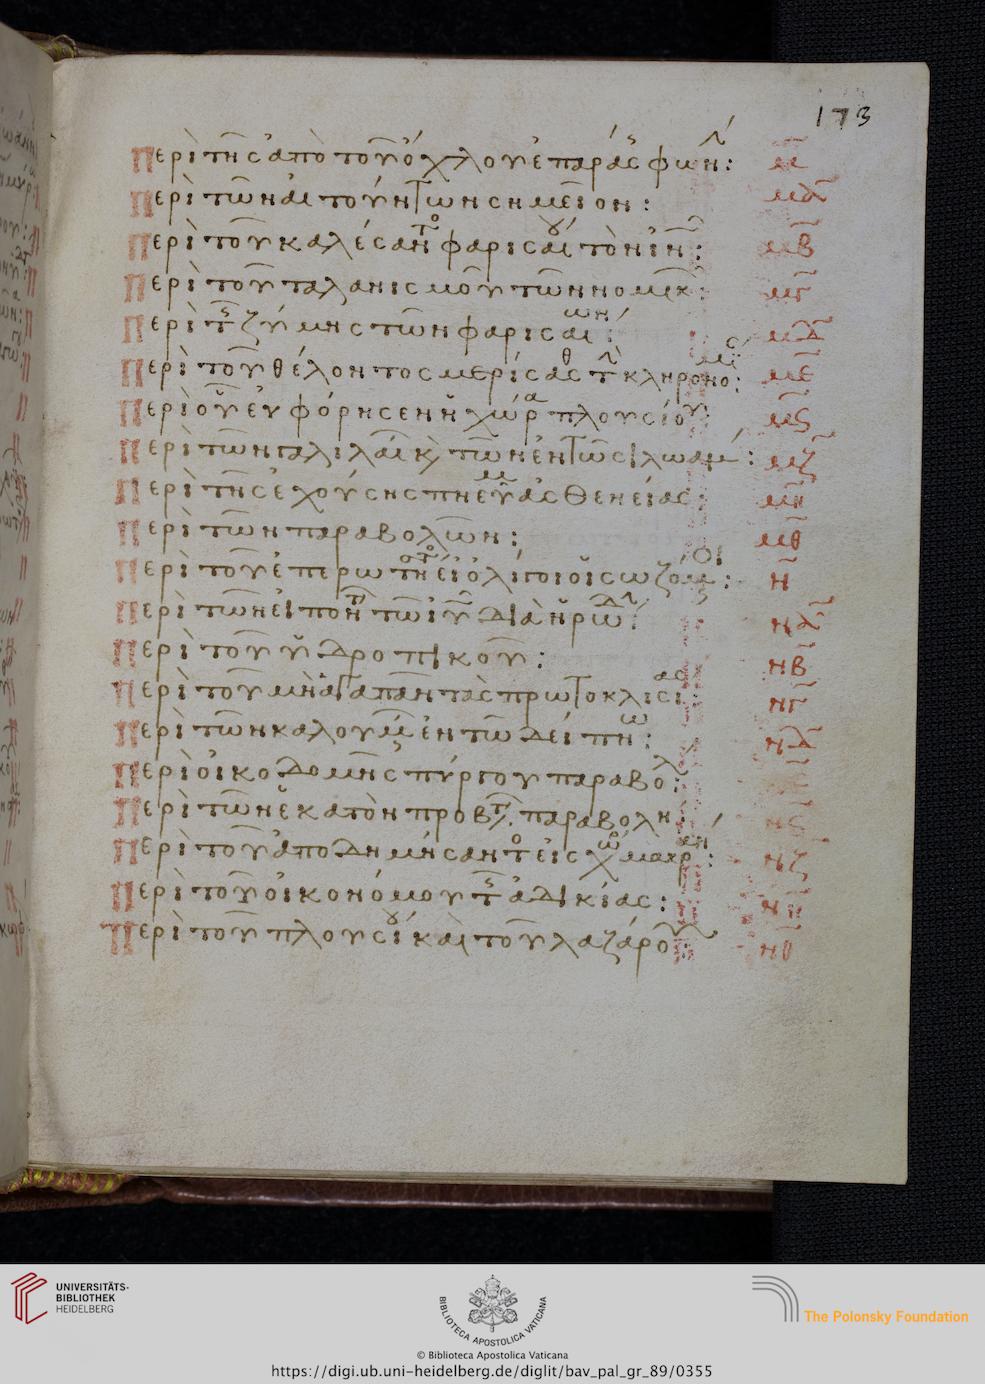 173
Περὶ τῆς ἀπὸ τοῦ ὄχλου ἐπαράσ φων: μ
Περὶ τῶν αἰτούντων σημεῖον: μα
Περὶ τοῦ καλέσαντο φαρισαί τὸν ἰν: μβ
Περὶ τοῦ ταλανισμοῦ τῶν νομικ: μγ
Περὶ τ ζύμης τῶν φαρισαίων: μδ
Περὶ τοῦ θέλοντος μερίσασθ τ κληρονο: με
Περὶ οὗ εὐφόρησεν ἡ χώρα πλουσίου: μς
Περὶ τῶν γαλιλαίκ τῶν ἐν τῶ σιλωαμ: μζ
Περὶ τῆς ἐχούσης πνεῦμα ἀσθενείας: μη
Περὶ τῶν παραβολῶν: μθ
Περὶ τοῦ ἐπερωτ εἰ ὀλίγοι οἱ σωζομ: ν
Περὶ τῶν εἰπόντ τῶ ἰυ διὰ ἡρώδ: να
Περὶ τοῦ ὑδροπικοῦ: νβ
Περὶ τοῦ μὴ ἀγαπᾶν τὰς πρωτοκλισίας: νγ
Περὶ τῶν καλουμ ἐν τῶ δείπνω: νδ
Περὶ οἰκοδομῆς πύργου παραβολ:
Περὶ τῶν ἑκατὸν προβτ παραβολή: νς
Περὶ τοῦ ἀποδημήσαντο εἰς χώ μακράν: νζ
Περὶ τοῦ οἰκονόμου τ ἀδικίας: νη
Περὶ τοῦ πλουσί καὶ τοῦ λαζάρου: νθ
UNIVERSITÄTS-
BIBLIOTHEK
HEIDELBERG
BIBLIOTECA APOSTOLICA VATICANA
The Polonsky Foundation
© Biblioteca Apostolica Vaticana
https://digi.ub.uni-heidelberg.de/diglit/bav_pal_gr_89/0355